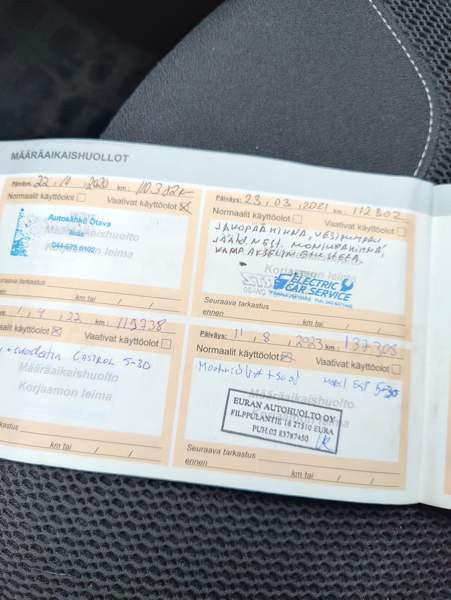 MÄÄRÄAIKAISHUOLLOT
Päiväys: 22 , 11 , 2020 km:
Normaalit käyttöolot Vaativat käyttöolot
Autosähkö Otava
Määräaikaishuolto
Korjaamon leima
Seuraava tarkastus
km tai / /
Päiväys: 23 , 03 , 2021 km: 112302
Normaalit käyttöolot Vaativat käyttöolot
JAKOPÄÄHIHNA, VESIPUMPPU
JÄÄHD.NEST. MONIURAHIHNA,
Korjaamon leima
ELECTRIC
CAR SERVICE
Seuraava tarkastus
ennen km tai / /
1 , 9 , 22 km: 119738
käyttöolot Vaativat käyttöolot
+ suodatin CASTROL 5-30
Määräaikaishuolto
Korjaamon leima
tarkastus
km tai / /
Päiväys: 11 , 8 , 2023 km: 137308
Normaalit käyttöolot Vaativat käyttöolot
5-30
Määräaikaishuolto
EURAN AUTOHUOLTO OY
FILPPULANTIE 16 27510 EURA
PUH.02 83787450
Seuraava tarkastus
ennen km tai / /